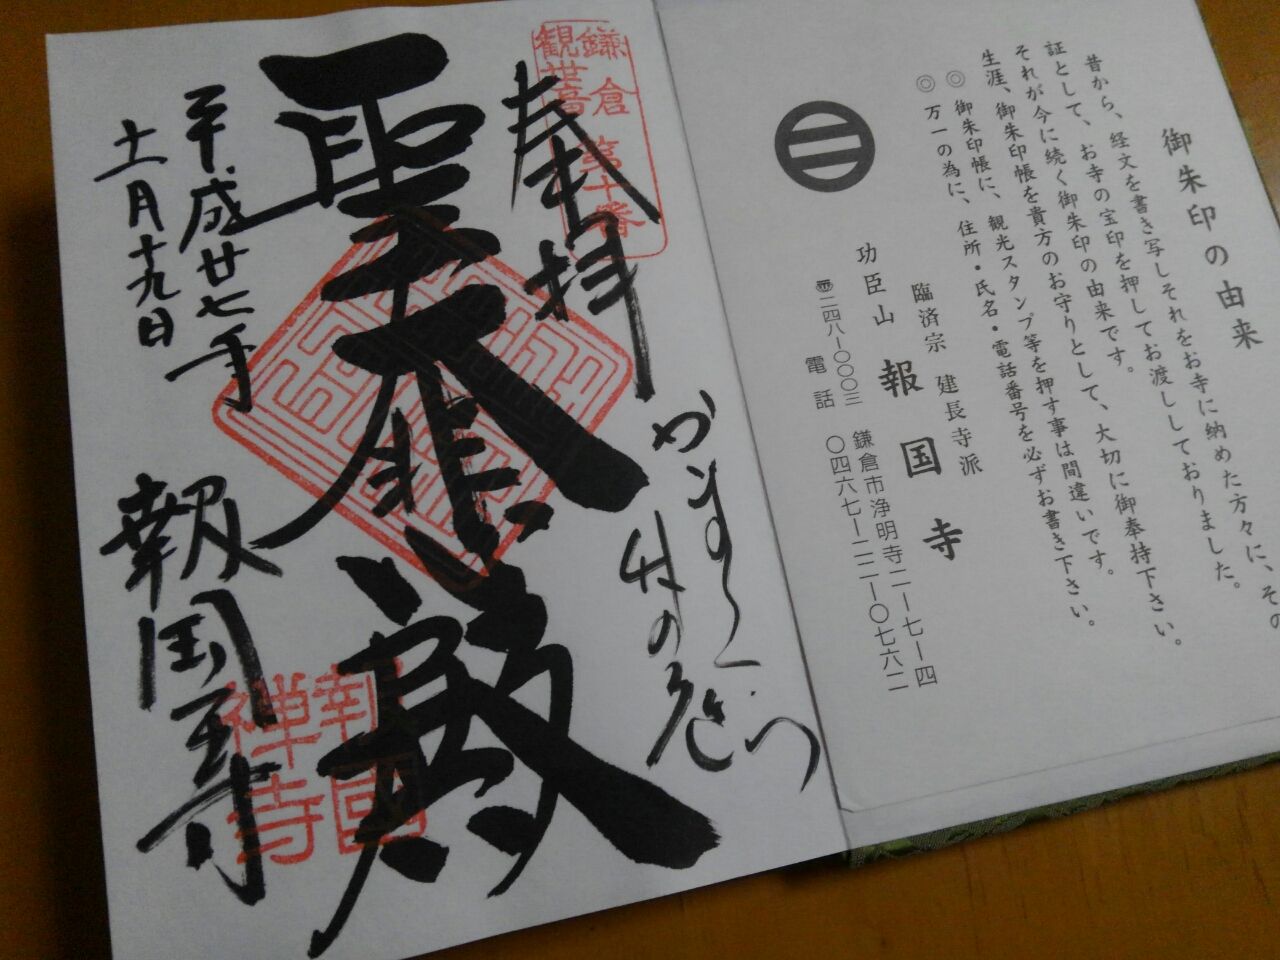 御朱印の由来
昔から、経文を書き写しそれをお寺に納めた方々に、その
証として、お寺の宝印を押してお渡ししておりました。
それが今に続く御朱印の由来です。
生涯、御朱印帳を貴方のお守りとして、大切に御奉持下さい。
◎ 御朱印帳に、観光スタンプ等を押す事は間違いです。
◎ 万一の為に、住所・氏名・電話番号を必ずお書き下さい。
臨済宗 建長寺派
功臣山 報国寺
〒二四八-〇〇〇三 鎌倉市浄明寺二-七-四
電話 〇四六七-二二-〇七六二
鎌倉第十番
観世音
奉拝
かまくら
竹の
聖大悲殿
平成廿七年
十一月十九日
報国寺
報國
禅寺